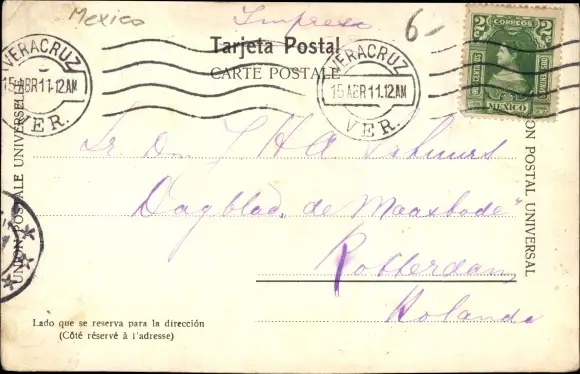 Mexico
Impreso
6-
Tarjeta Postal
CARTE POSTALE
VERACRUZ
15 ABR 11. 12 AM
VER.
VERACRUZ
15 ABR 11. 12 AM
VER.
2 CORREOS 2
MEXICO
UNION POSTALE UNIVERSELLE
UNION POSTAL UNIVERSAL
Sr Dn J H A
Dagblad "de Maasbode"
Rotterdam
Holanda
Lado que se reserva para la dirección
(Côté réservé à l'adresse)